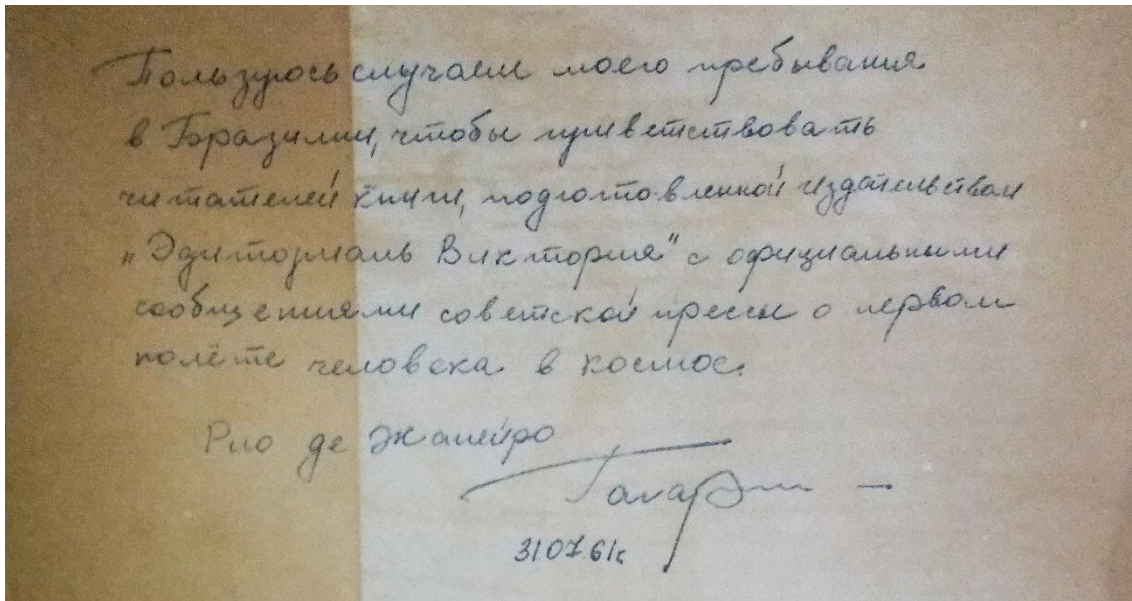 Пользуюсь случаем моего пребывания
в Бразилии, чтобы приветствовать
читателей книги, подготовленной издательством
„Эдиториаль Виктория" с официальными
сообщениями советской прессы о первом
полёте человека в космос.
Рио де Жанейро
Гагарин
31.07.61г.